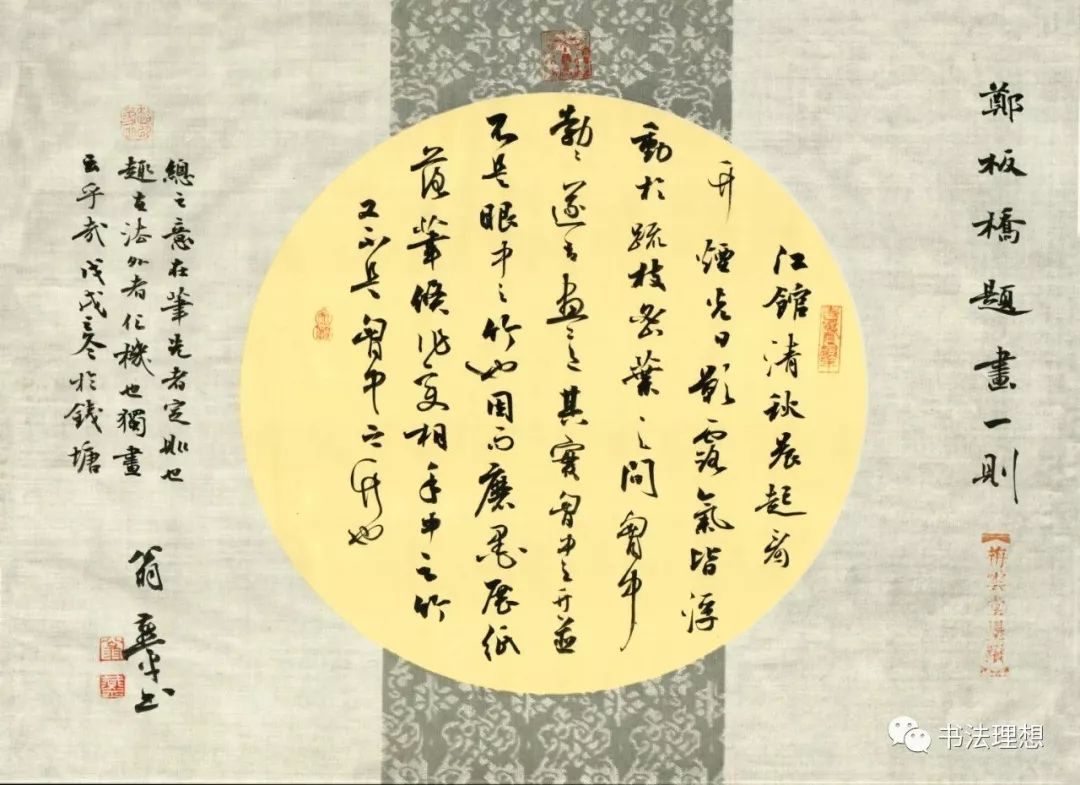 鄭板橋題畫一則
江館清秋晨起看
竹煙光日影露氣皆浮
動於疏枝密葉之間胷中
勃〻遂有畫意其實胷中之竹並
不是眼中之竹也因而磨墨展紙
落筆倏作變相手中之竹
又不是胷中之竹也
總之意在筆先者定則也
趣在法外者化機也獨畫
云乎哉戊戌之冬於錢塘
翁書
书法理想